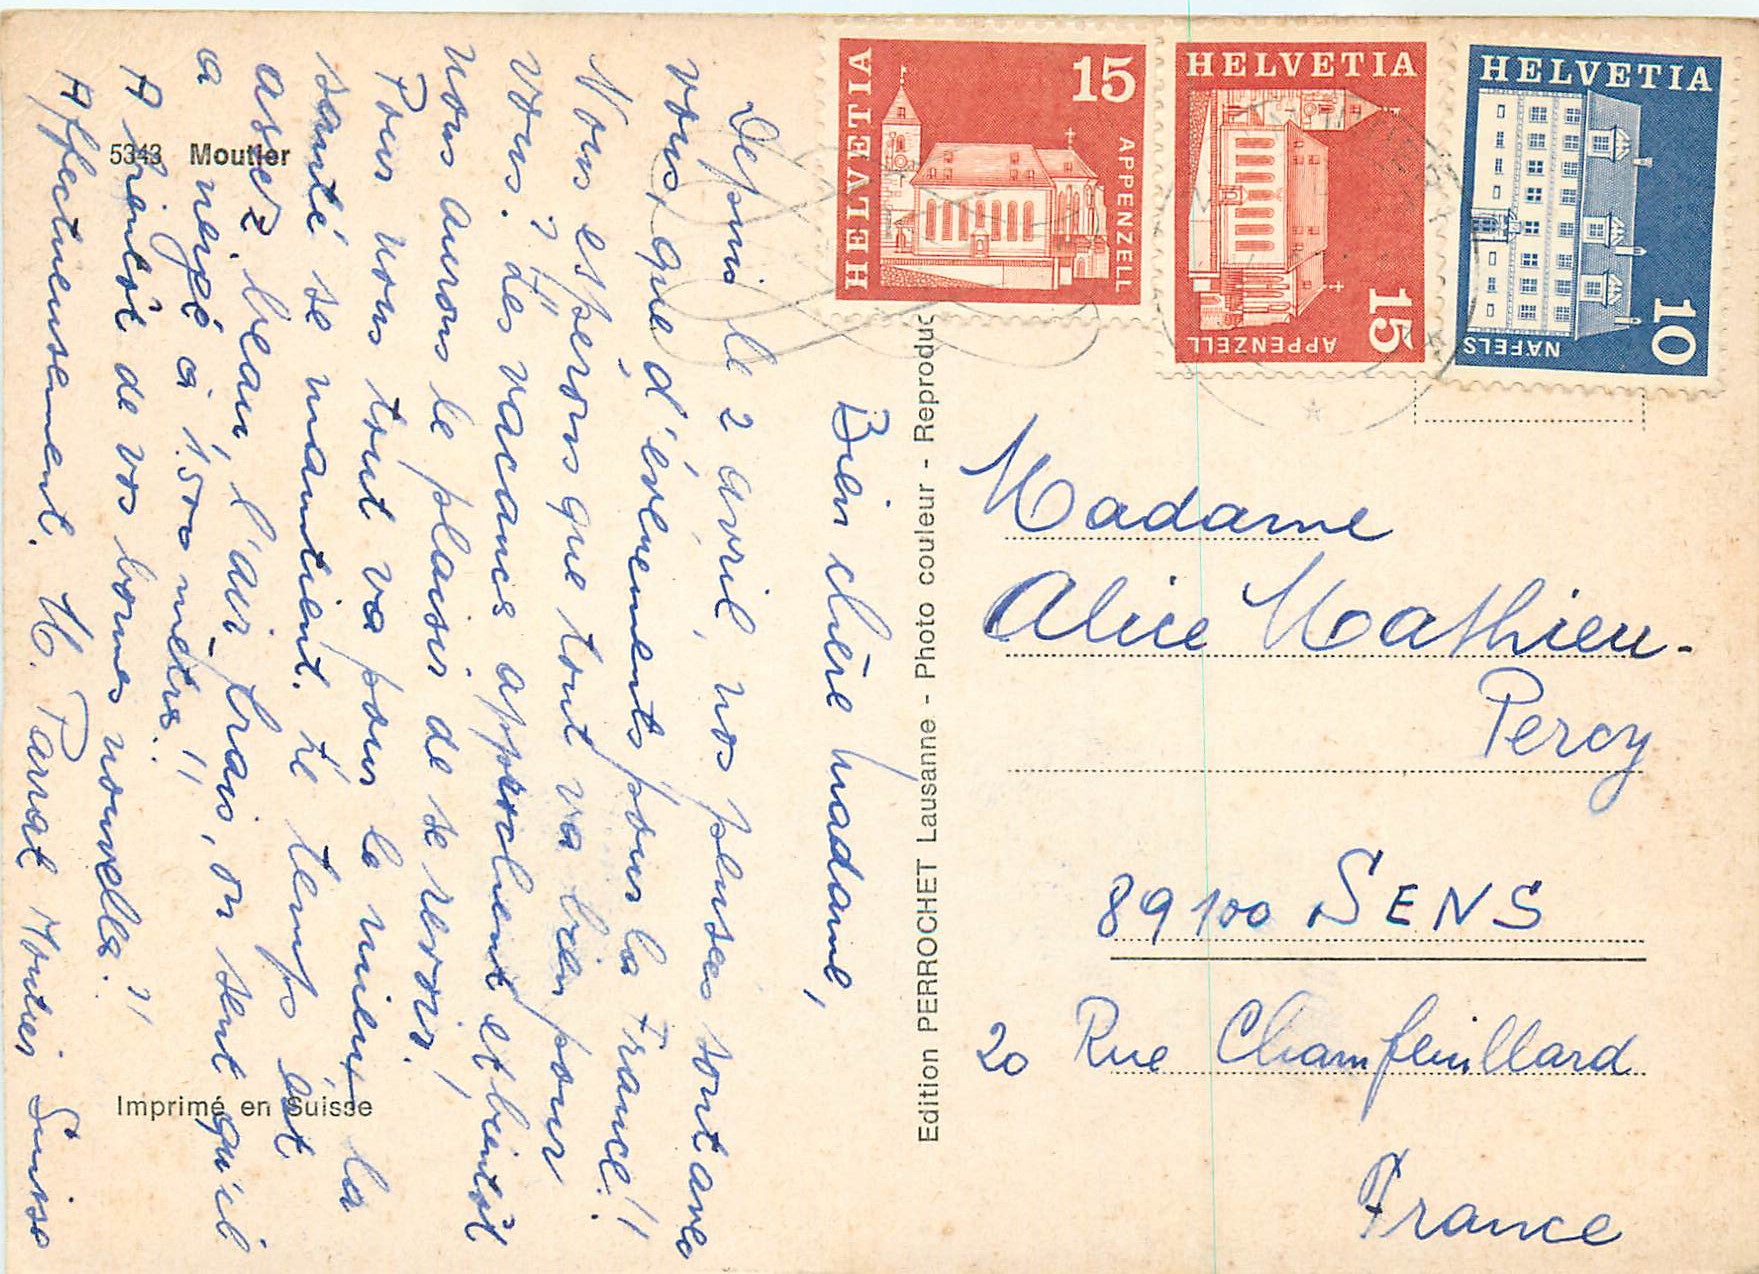 5343 Moutier
Bien chère madame,
Depuis le 2 avril, nos pensées sont avec
vous, que d'évènements pour la France!!
Nous espérons que tout va bien pour
vous. ? !! Les vacances approchent et bientôt
nous aurons le plaisir de se revoir!
Pour nous tout va pour le mieux, la
santé se maintient. Le temps est
assez beau, l'air frais, on sent qu'il
a neigé à 1500 mètres. !!
A bientôt de vos bonnes nouvelles. !!
Affectueusement. H. Parrat Moutier Suisse
Imprimé en Suisse
Edition PERROCHET Lausanne - Photo couleur - Reproduc
HELVETIA 15 APPENZELL
HELVETIA 15 APPENZELL
HELVETIA 10 NÄFELS
Madame
Alice Mathieu-
Percy
89100 SENS
20 Rue Champfeuillard
France